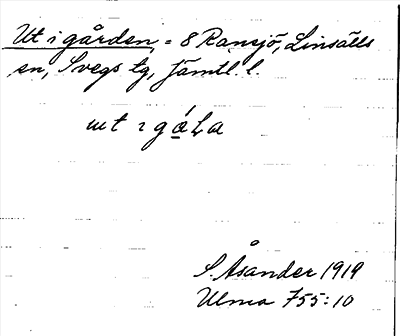 Ut i gården = 8 Ransjö, Linsälls
sn, Svegs tg, Jämtl. l.
ɯt ɿ gálа
S. Åsander 1919
Ulma 755:10